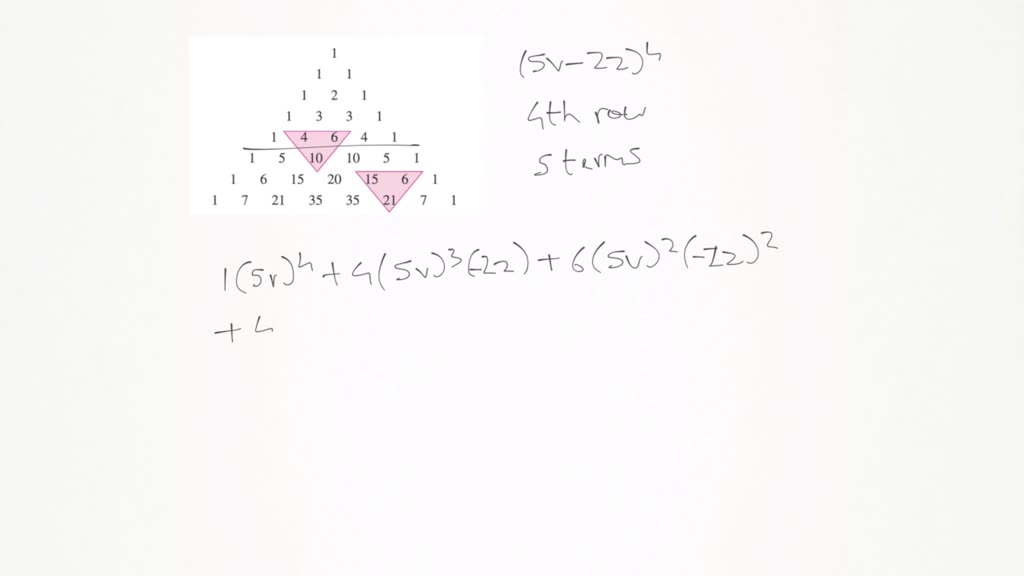 1
1 1
1 2 1
1 3 3 1
1 4 6 4 1
1 5 10 10 5 1
1 6 15 20 15 6 1
1 7 21 35 35 21 7 1
(5v-2z)^4
4th row
5 terms
1(5v)^4+4(5v)^3(-2z)+6(5v)^2(-2z)^2
+4